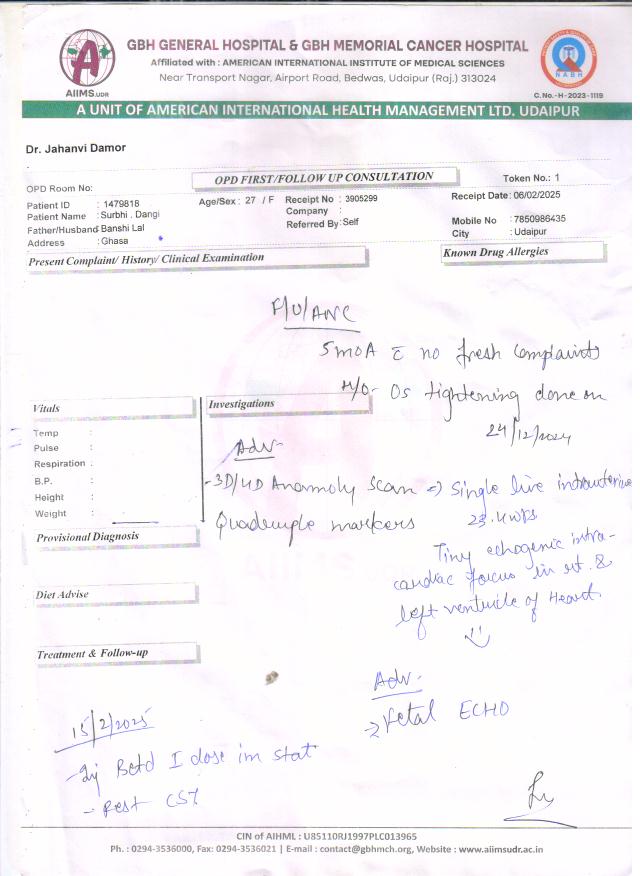 GBH GENERAL HOSPITAL & GBH MEMORIAL CANCER HOSPITAL
Affiliated with : AMERICAN INTERNATIONAL INSTITUTE OF MEDICAL SCIENCES
Near Transport Nagar, Airport Road, Bedwas, Udaipur (Raj.) 313024
AIIMS.UDR
NABH
C.No.-H-2023-1119
A UNIT OF AMERICAN INTERNATIONAL HEALTH MANAGEMENT LTD. UDAIPUR
Dr. Jahanvi Damor
OPD FIRST/FOLLOW UP CONSULTATION
Token No.: 1
OPD Room No:
Patient ID : 1479818
Age/Sex : 27 / F
Receipt No : 3905299
Receipt Date: 06/02/2025
Patient Name : Surbhi . Dangi
Company :
Father/Husband: Banshi Lal
Referred By : Self
Mobile No : 7850986435
Address : Ghasa
City : Udaipur
Present Complaint/ History/ Clinical Examination
Known Drug Allergies
F/U/ANC
5MOA c no fresh complaints
H/O- Os tightening done on
24/12/2024
Vitals
Investigations
Temp :
Pulse :
Respiration :
B.P. :
Height :
Weight :
Adv-
-3D/4D Anamoly Scan => Single live intrauterine
Quadruple markers
23.4wks
Tiny echogenic intra-
cardiac focus in rt. &
left ventricle of Heart.
Provisional Diagnosis
Diet Advise
Treatment & Follow-up
Adv-
=> Fetal ECHO
15/2/2025
- Inj Betd I dose im stat
- Rest CST
CIN of AIHML : U85110RJ1997PLC013965
Ph. : 0294-3536000, Fax: 0294-3536021 | E-mail : contact@gbhmch.org, Website : www.aiimsudr.ac.in